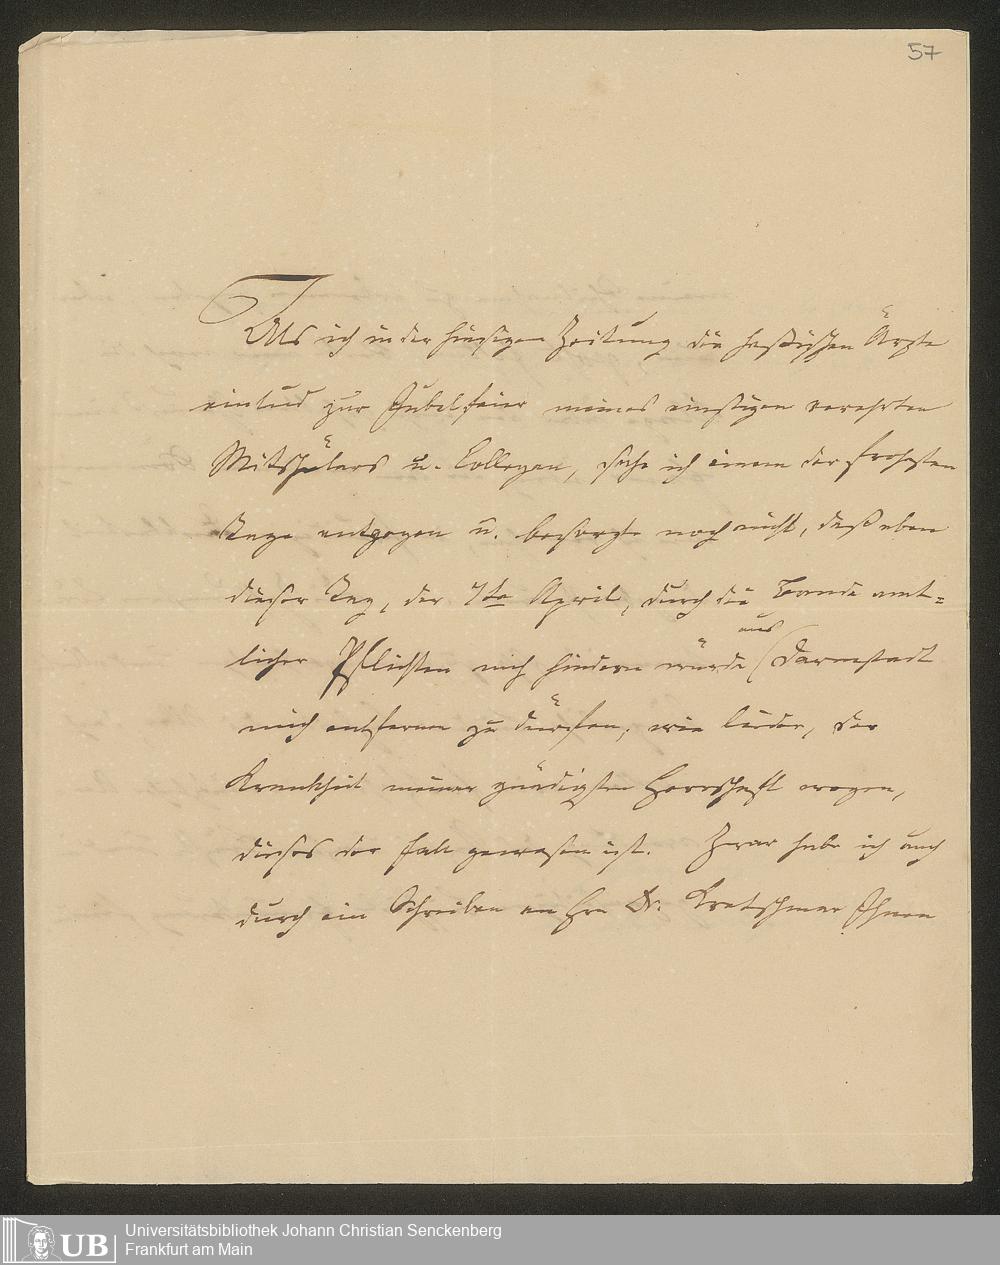 57
Als ich in der hiesigen Zeitung die hessischen Ärzte
einlud zur Jubelfeier meines einstigen verehrten
Mitschülers u. Collegen, sahe ich einem der frohesten
Tage entgegen u. besorgte noch nicht, daß eben
dieser Tag, der 7te April, durch die Bande amt=
licher Pflichten mich hindern würde aus Darmstadt
mich entfernen zu dürfen, wie leider, der
Krankheit meiner gnädigsten Herrschaft wegen,
dieses der Fall gewesen ist. Zwar habe ich auch
durch ein Schreiben an Hrn Dr. Kretschmar Ihnen
UB
Universitätsbibliothek Johann Christian Senckenberg
Frankfurt am Main